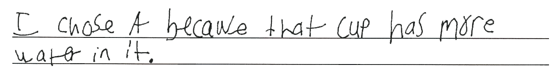 I chose A because that cup has more
water in it.